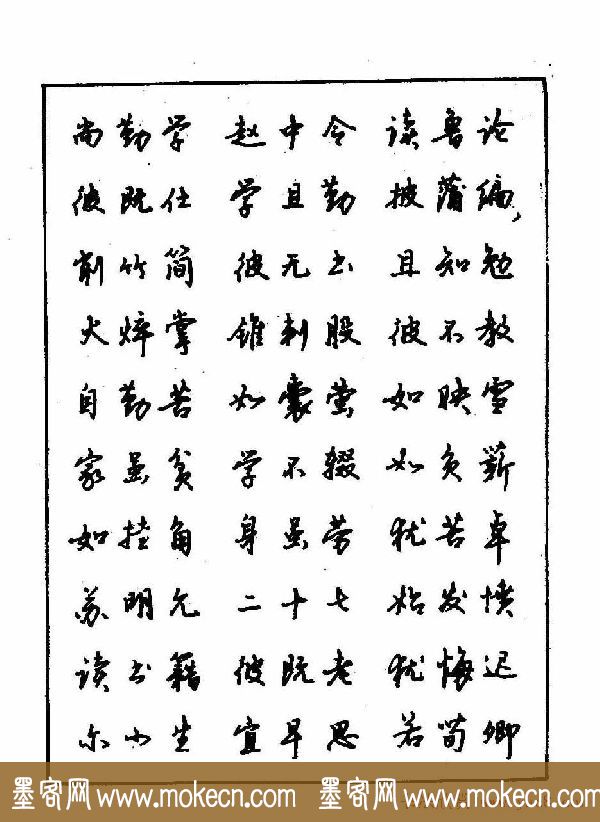 尚勤学 赵中令 读鲁论
彼既仕 学且勤 披蒲编,
削竹简 彼无书 且知勉
火焠掌 锥刺股 彼不教
自勤苦 如囊萤 如映雪
家虽贫 学不辍 如负薪
如挂角 身虽劳 犹苦卓
苏明允 二十七 始发愤
读书籍 彼既老 犹悔迟
尔小生 宜早思 若荀卿
墨客网 www.mokecn.com 墨客网 www.mokecn.com